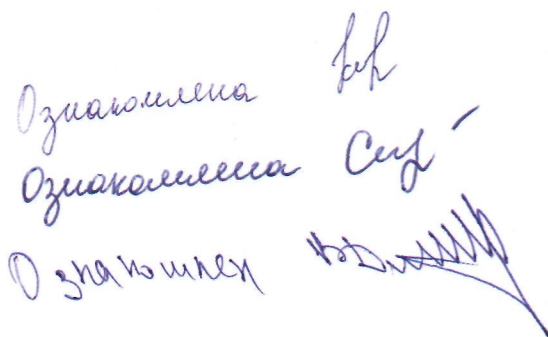 Ознакомлена
Ознакомлена
Ознакомлен